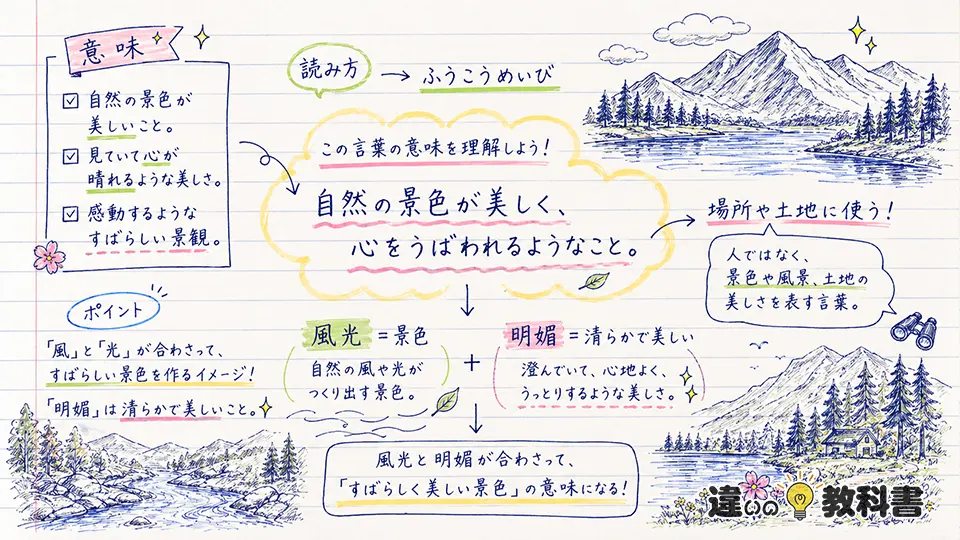 意味
自然の景色が
美しいこと。
見ていて心が
晴れるような美しさ。
感動するような
すばらしい景観。
読み方
→ ふうこうめいび
この言葉の意味を理解しよう!
自然の景色が美しく、
心をうばわれるようなこと。
場所や土地に使う!
人ではなく、
景色や風景、土地の
美しさを表す言葉。
ポイント
「風」と「光」が合わさって、
すばらしい景色を作るイメージ!
「明媚」は清らかで美しいこと。
風光 = 景色
自然の風や光が
つくり出す景色。
+
明媚 = 清らかで美しい
澄んでいて、心地よく、
うっとりするような美しさ。
風光と明媚が合わさって、
「すばらしく美しい景色」の意味になる!
違いの教科書